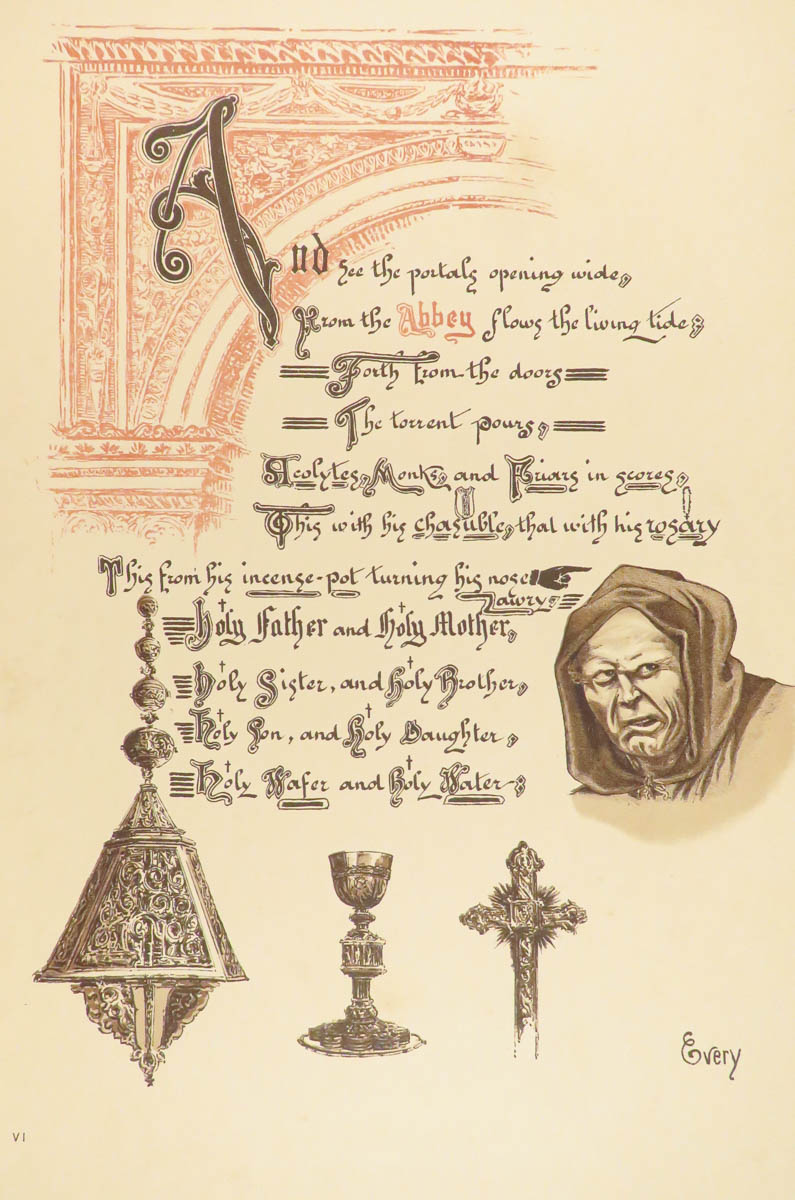 And see the portals opening wide,
From the Abbey flows the living tide;
Forth from the doors
The torrent pours,
Acolytes, Monks, and Friars in scores,
This with his chasuble, that with his rosary
This from his incense-pot turning his nose
awry;
Holy Father and Holy Mother,
Holy Sister, and Holy Brother,
Holy Son, and Holy Daughter,
Holy Wafer and Holy Water;
Every
VI